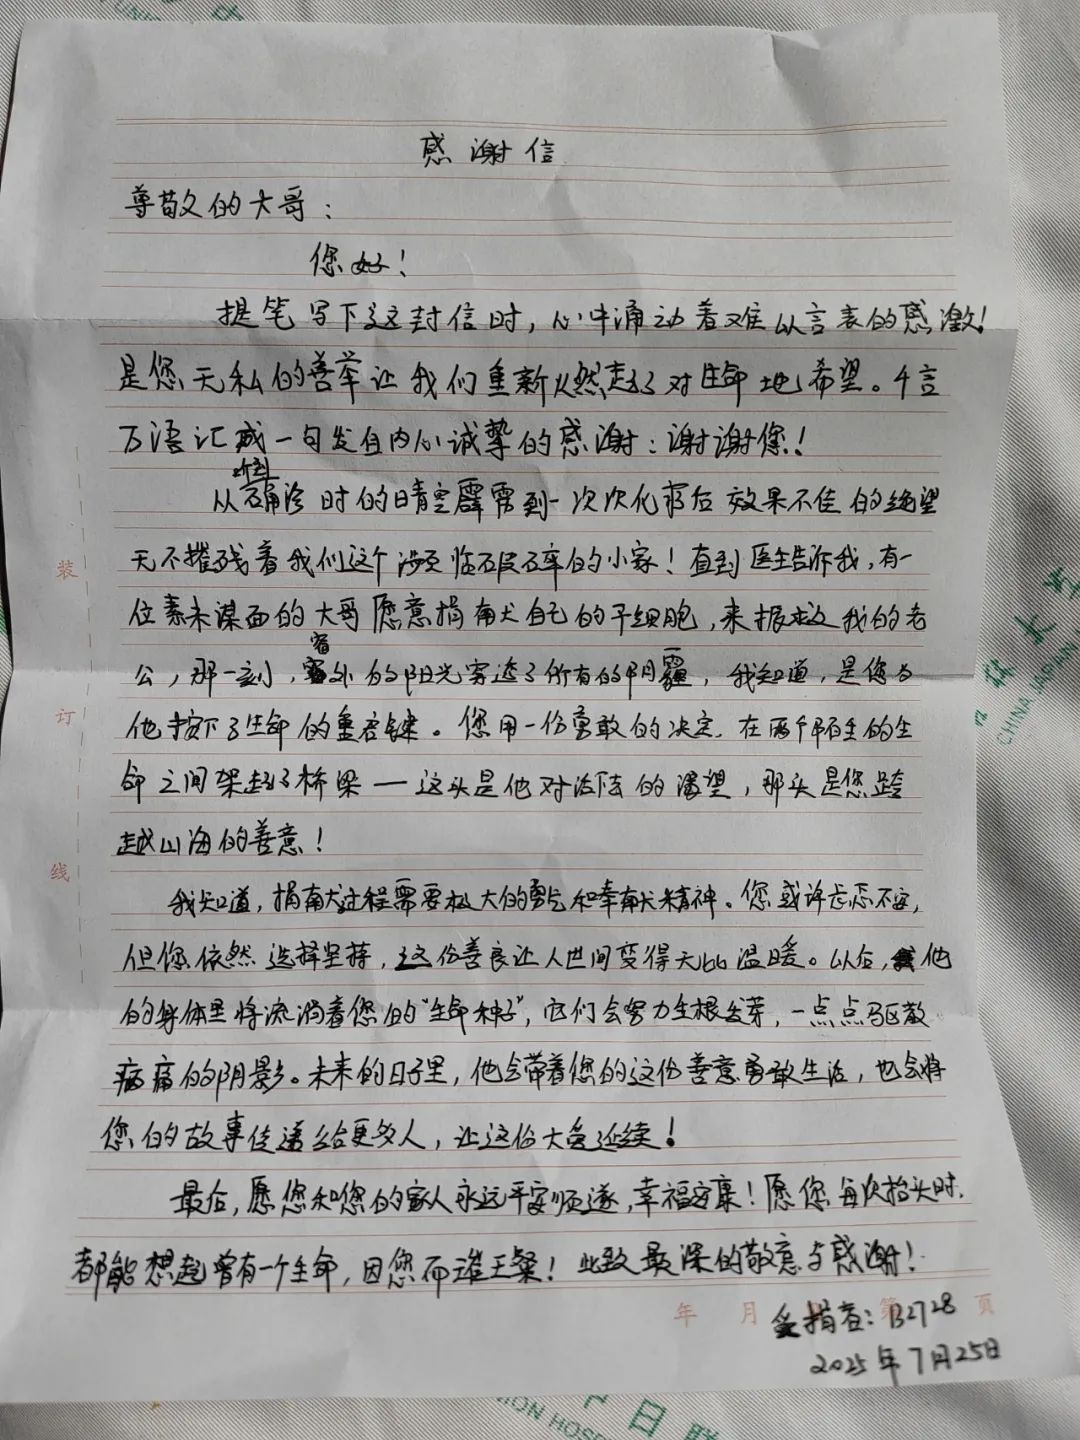 感谢信
尊敬的大哥：
您好！
提笔写下这封信时，心中涌动着难以言表的感激！
是您无私的善举让我们重新燃起了对生命地希望。千言
万语汇成一句发自内心诚挚的感谢：谢谢您！
从确诊时的晴空霹雳到一次次化疗后效果不佳的绝望
无不摧残着我们这个濒临破碎的小家！直到医生告诉我，有一
位素未谋面的大哥愿意捐献自己的干细胞，来拯救我的老
公，那一刻，窗外的阳光穿透了所有的阴霾，我知道，是您为
他按下了生命的重启键。您用一份勇敢的决定，在两个陌生的生
命之间架起了桥梁——这头是他对活下去的渴望，那头是您跨
越山海的善意！
我知道，捐献过程需要极大的勇气和奉献精神。您或许忐忑不安，
但您依然选择坚持，这份善良让人世间变得无比温暖。以后，他
的身体里将流淌着您的“生命种子”，它们会努力生根发芽，一点点驱散
病痛的阴影。未来的日子里，他会带着您的这份善意勇敢生活，也会将
您的故事传递给更多人，让这份大爱延续！
最后，愿您和您的家人永远平安顺遂，幸福安康！愿您每次抬头时，
都能想起曾有一个生命，因您而璀璨！此致最深的敬意与感谢！
年 月 第 页
受捐者：B2728
2025年7月25日
装
订
线
CHINA JAPAN
中日联
UNION HOSP